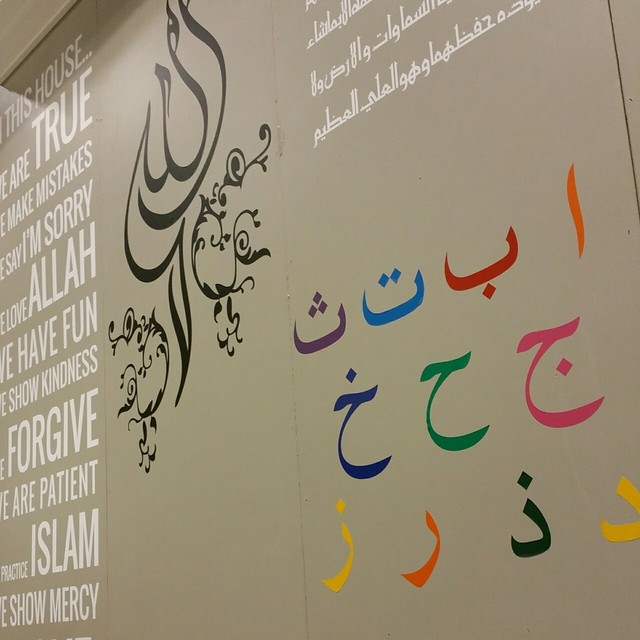 THIS HOUSE...
WE ARE TRUE
WE MAKE MISTAKES
WE SAY I'M SORRY
WE LOVE ALLAH
WE HAVE FUN
WE SHOW KINDNESS
FORGIVE
WE ARE PATIENT
PRACTICE ISLAM
WE SHOW MERCY
الله
السماوات والارض ولا
يوده حفظهما وهو العلي العظيم
ا ب ت ث
ج ح خ
د ذ ر ز